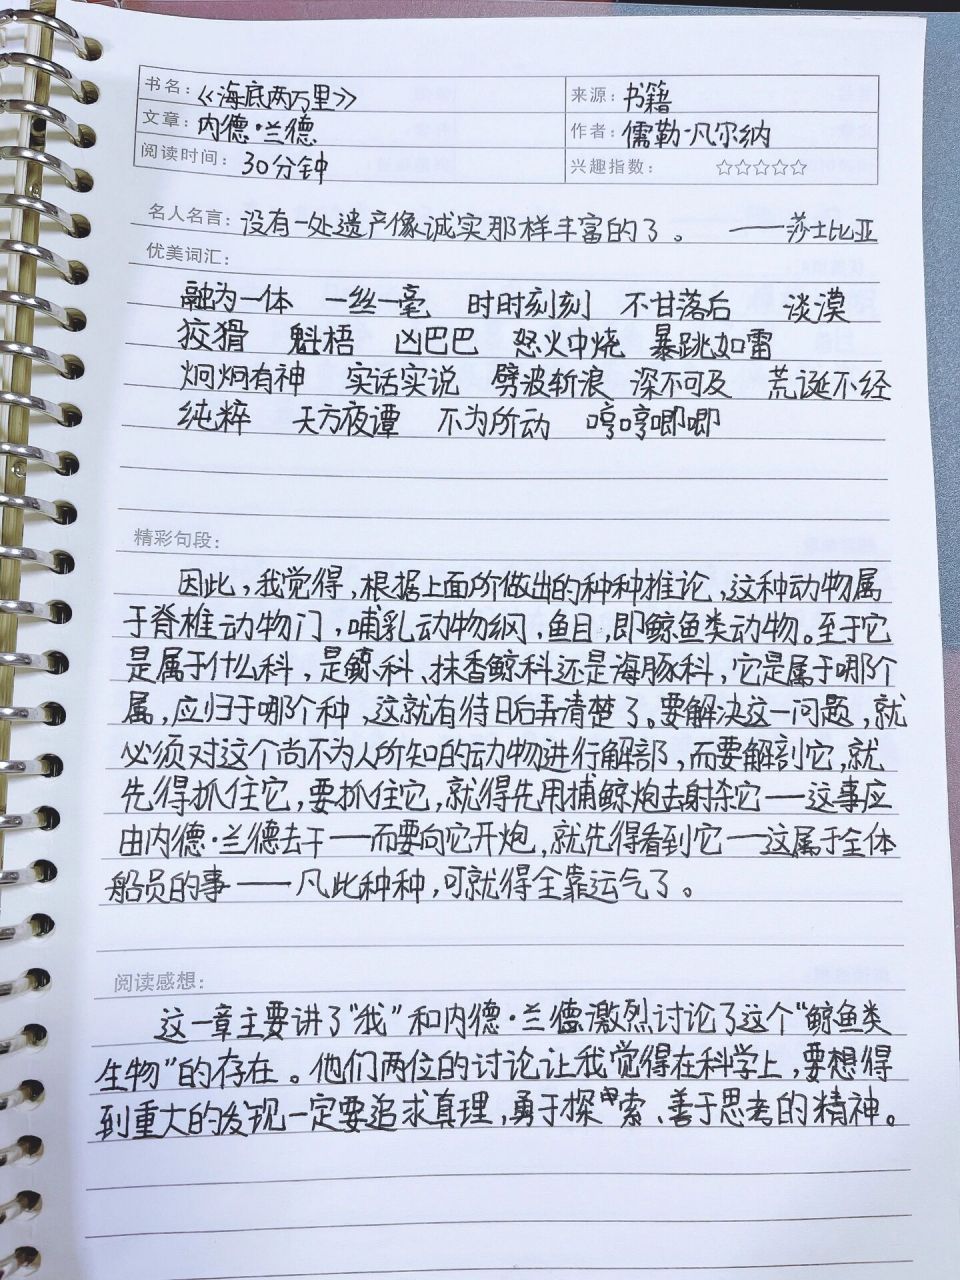 书名：《海底两万里》 来源：书籍
文章：内德·兰德 作者：儒勒·凡尔纳
阅读时间：30分钟 兴趣指数：☆☆☆☆☆
名人名言：没有一处遗产像诚实那样丰富的了。 ——莎士比亚
优美词汇：
融为一体 一丝一毫 时时刻刻 不甘落后 淡漠
狡猾 魁梧 凶巴巴 怒火中烧 暴跳如雷
炯炯有神 实话实说 劈波斩浪 深不可及 荒诞不经
纯粹 天方夜谭 不为所动 哼哼唧唧
精彩句段：
因此，我觉得，根据上面所做出的种种推论，这种动物属
于脊椎动物门，哺乳动物纲，鱼目，即鲸鱼类动物。至于它
是属于什么科，是鲸科、抹香鲸科还是海豚科，它是属于哪个
属，应归于哪个种，这就有待日后弄清楚了。要解决这一问题，就
必须对这个尚不为人所知的动物进行解部，而要解剖它，就
先得抓住它，要抓住它，就得先用捕鲸炮去射杀它——这事应
由内德·兰德去干——而要向它开炮，就先得看到它——这属于全体
船员的事——凡此种种，可就得全靠运气了。
阅读感想：
这一章主要讲了“我”和内德·兰德激烈讨论了这个“鲸鱼类
生物”的存在。他们两位的讨论让我觉得在科学上，要想得
到重大的发现一定要追求真理，勇于探索、善于思考的精神。